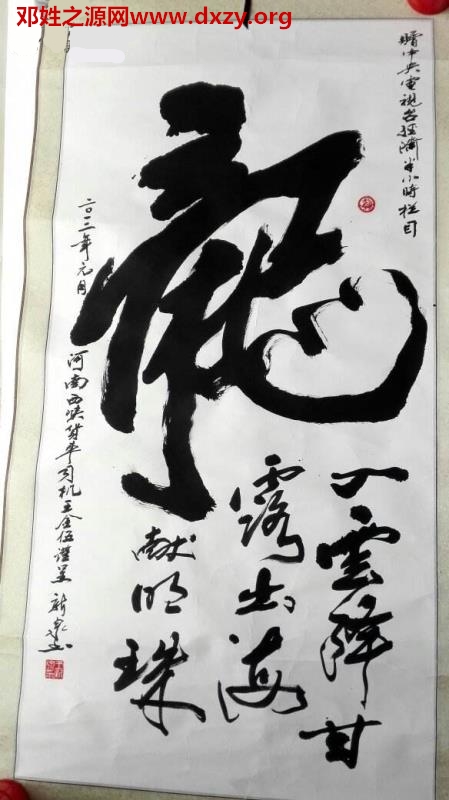 邓姓之源网www.dxzy.org
赠中央電視台经濟半小時栏目
龍
入雲降甘
露出海
献明珠
二〇一二年元月
河南西峡货车司机王金伍谨呈